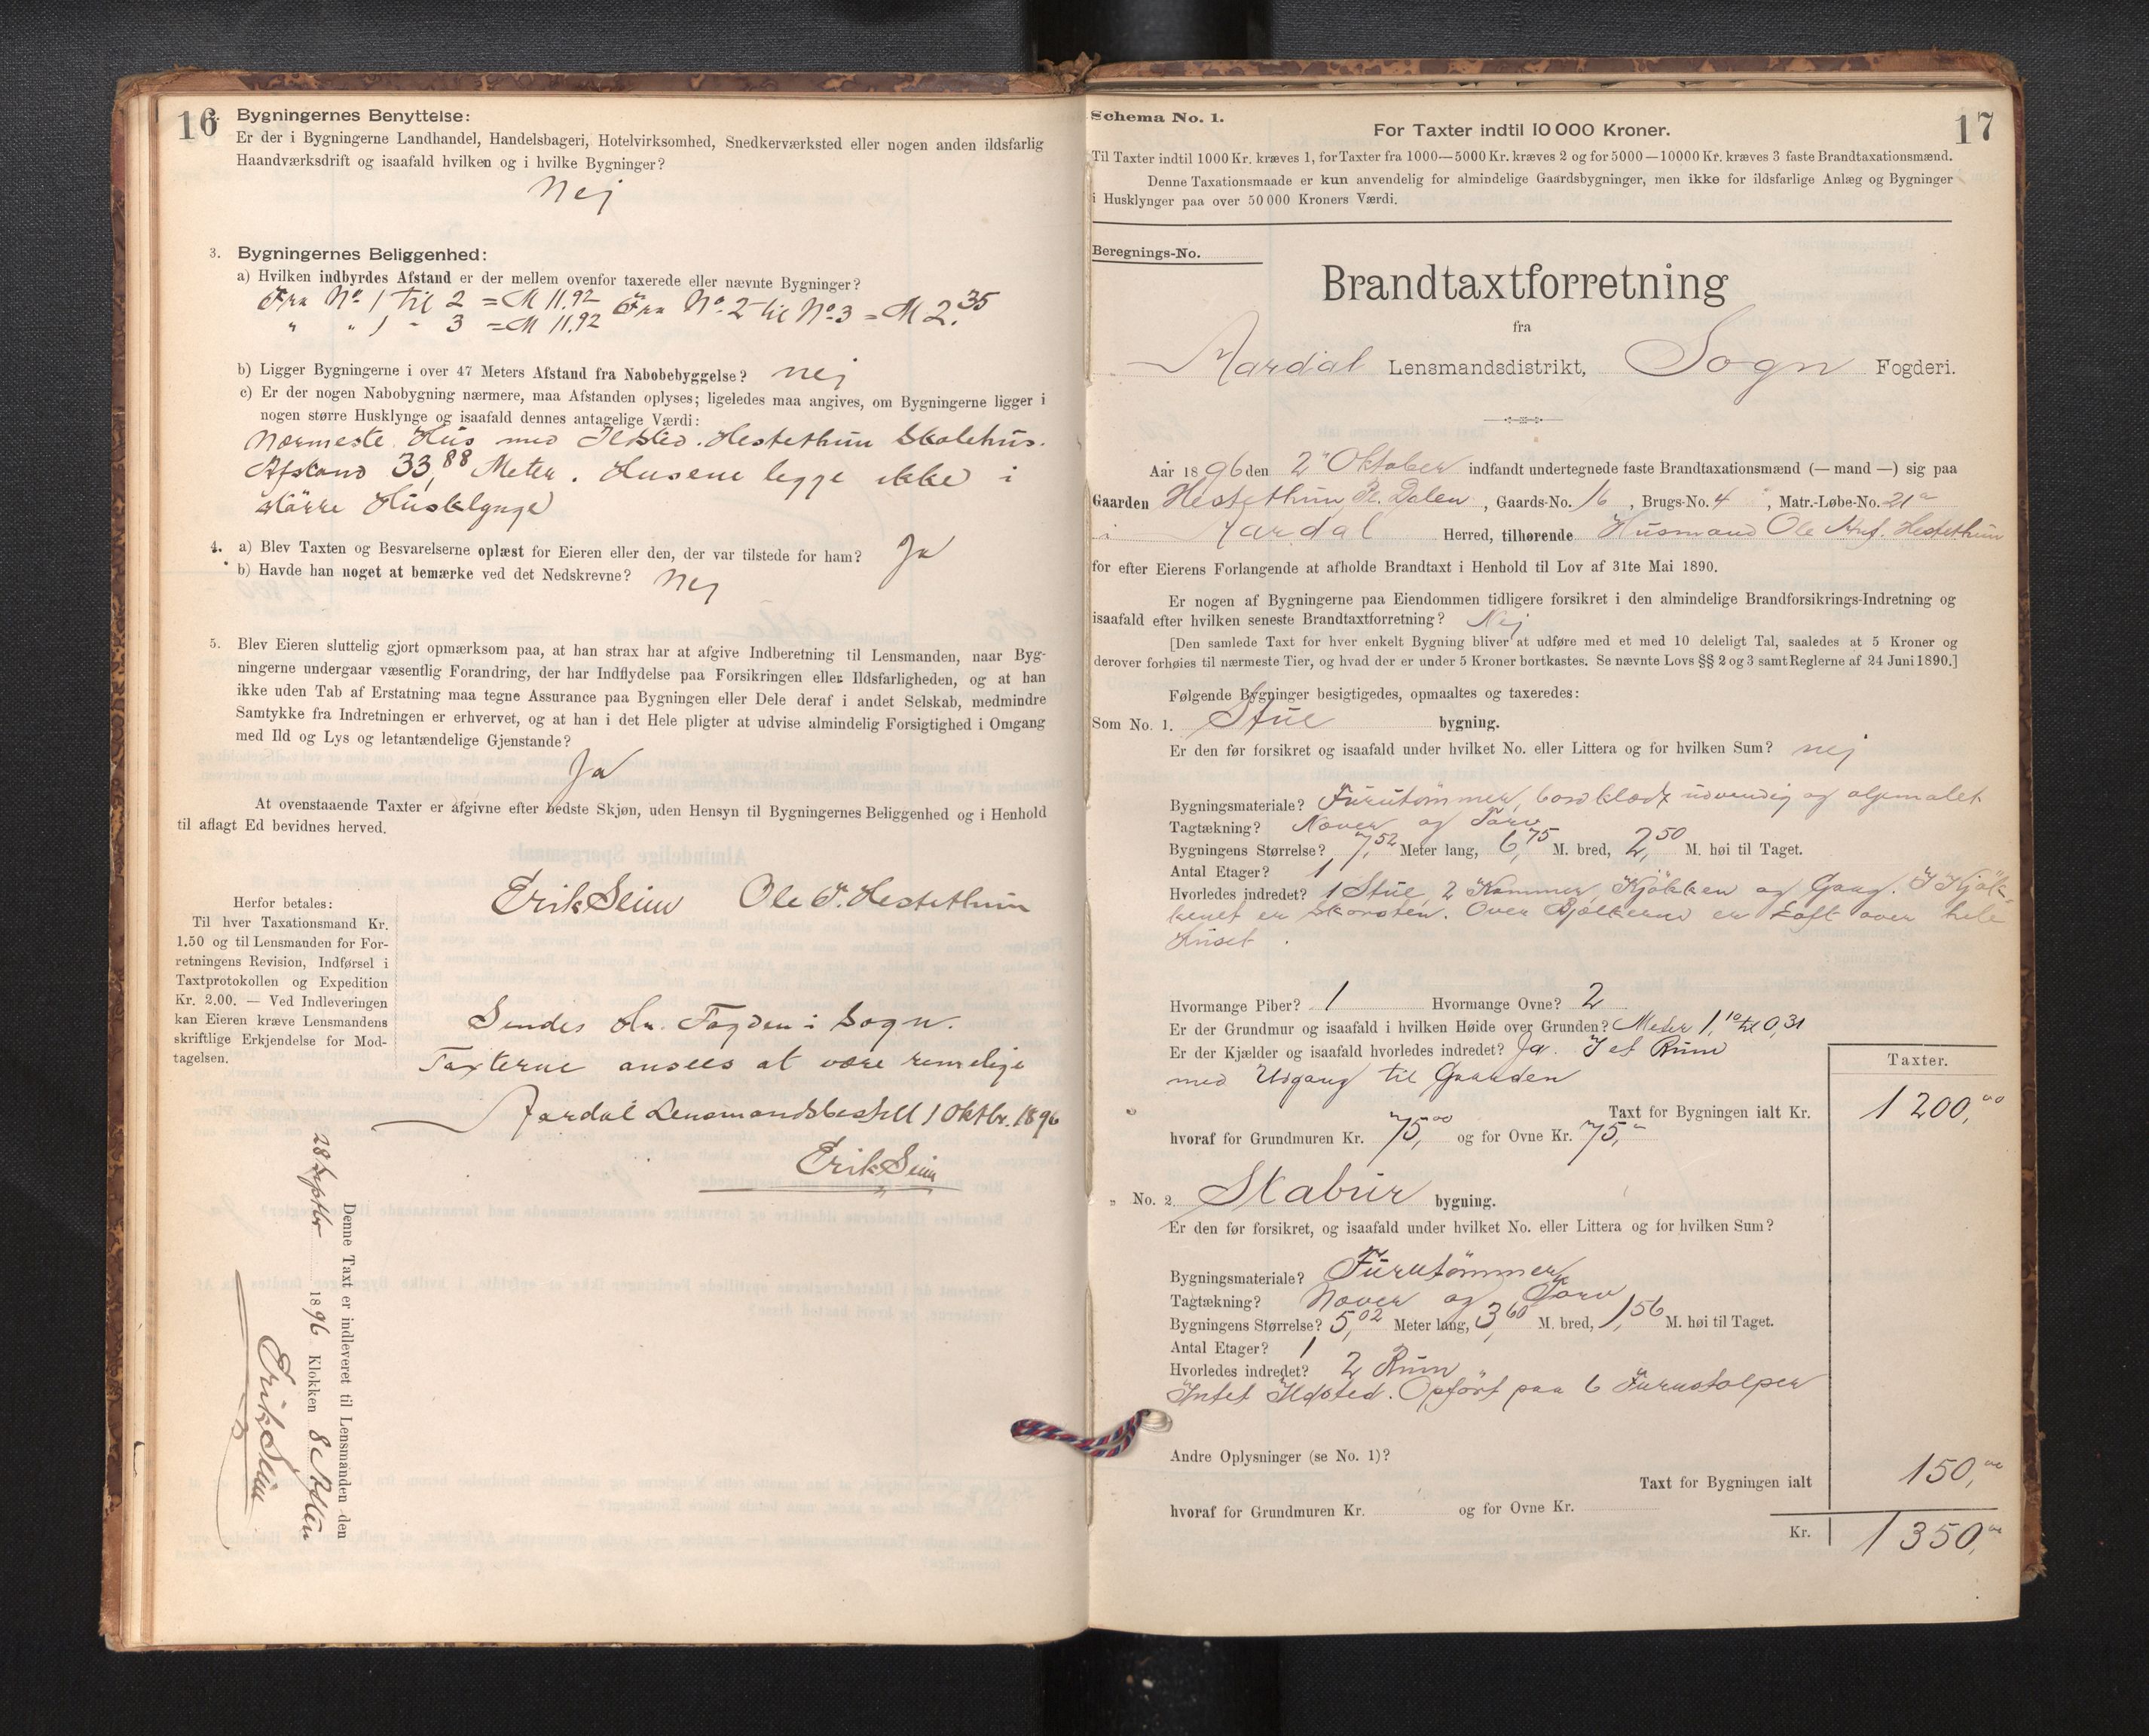 16
Bygningernes Benyttelse:
Er der i Bygningerne Landhandel, Handelsbageri, Hotelvirksomhed, Snedkerværksted eller nogen anden ildsfarlig
Haandværksdrift og isaafald hvilken og i hvilke Bygninger?
Nej
3. Bygningernes Beliggenhed:
a) Hvilken indbyrdes Afstand er der mellem ovenfor taxerede eller nævnte Bygninger?
Fra No 1 til 2 = M 11.92 Fra No 2 til No 3 = M 2.35
" " 1 - 3 = M 11.92
b) Ligger Bygningerne i over 47 Meters Afstand fra Nabobebyggelse? nej
c) Er der nogen Nabobygning nærmere, maa Afstanden oplyses; ligeledes maa angives, om Bygningerne ligger i
nogen større Husklynge og isaafald dennes antagelige Værdi:
Nærmeste Hus med Ildsted. Hestethun Skolehus.
Afstand 33,88 Meter. Husene legge ikke i
större Husklynge
4. a) Blev Taxten og Besvarelserne oplæst for Eieren eller den, der var tilstede for ham? Ja
b) Havde han noget at bemærke ved det Nedskrevne? Nej
5. Blev Eieren sluttelig gjort opmærksom paa, at han strax har at afgive Indberetning til Lensmanden, naar Byg-
ningerne undergaar væsentlig Forandring, der har Indflydelse paa Forsikringen eller Ildsfarligheden, og at han
ikke uden Tab af Erstatning maa tegne Assurance paa Bygningen eller Dele deraf i andet Selskab, medmindre
Samtykke fra Indretningen er erhvervet, og at han i det Hele pligter at udvise almindelig Forsigtighed i Omgang
med Ild og Lys og letantændelige Gjenstande?
Ja
At ovenstaaende Taxter er afgivne efter bedste Skjøn, uden Hensyn til Bygningernes Beliggenhed og i Henhold
til aflagt Ed bevidnes herved.
Erik Seim Ole T. Hestethun
Herfor betales:
Til hver Taxationsmand Kr.
1.50 og til Lensmanden for For-
retningens Revision, Indførsel i
Taxtprotokollen og Expedition
Kr. 2.00. — Ved Indleveringen
kan Eieren kræve Lensmandens
skriftlige Erkjendelse for Mod-
tagelsen.
Sendes Hr. Fogden i Sogn.
Taxterne ansees at være rimelige
Aardal Lensmandsbestill 1 Oktbr. 1896
Erik Seim
Denne Taxt er indleveret til Lensmanden den
28 Septbr 1896 Klokken 8 Aften
Erik Seim
Schema No. 1.
17
For Taxter indtil 10 000 Kroner.
Til Taxter indtil 1000 Kr. kræves 1, for Taxter fra 1000—5000 Kr. kræves 2 og for 5000—10000 Kr. kræves 3 faste Brandtaxationsmænd.
Denne Taxationsmaade er kun anvendelig for almindelige Gaardsbygninger, men ikke for ildsfarlige Anlæg og Bygninger
i Husklynger paa over 50 000 Kroners Værdi.
Beregnings-No.
Brandtaxtforretning
fra
Aardal Lensmandsdistrikt, Sogn Fogderi.
Aar 1896 den 2 Oktober indfandt undertegnede faste Brandtaxationsmænd (— mand —) sig paa
Gaarden Hestethun, Pl. Dalen, Gaards-No. 16, Brugs-No. 4, Matr.-Løbe-No. 21a
i Aardal Herred, tilhørende Husmand Ole Hestethun
for efter Eierens Forlangende at afholde Brandtaxt i Henhold til Lov af 31te Mai 1890.
Er nogen af Bygningerne paa Eiendommen tidligere forsikret i den almindelige Brandforsikrings-Indretning og
isaafald efter hvilken seneste Brandtaxtforretning? Nej
[Den samlede Taxt for hver enkelt Bygning bliver at udføre med et med 10 deleligt Tal, saaledes at 5 Kroner og
derover forhøies til nærmeste Tier, og hvad der er under 5 Kroner bortkastes. Se nævnte Lovs §§ 2 og 3 samt Reglerne af 24 Juni 1890.]
Følgende Bygninger besigtigedes, opmaaltes og taxeredes:
Som No. 1. Stue bygning.
Er den før forsikret og isaafald under hvilket No. eller Littera og for hvilken Sum? nej
Bygningsmateriale? Furutömmer, bordklædt udvendig og oljemalet
Tagtækning? Næver og Törv
Bygningens Størrelse? 7,52 Meter lang, 6,75 M. bred, 2,50 M. høi til Taget.
Antal Etager? 1
Hvorledes indredet? 1 Stue, 2 Kammer, Kjökken og Gang. I Kjök-
kenet er Skorsten. Over Bjelkerne er Loft over hele
Huset.
Hvormange Piber? 1 Hvormange Ovne? 2
Er der Grundmur og isaafald i hvilken Høide over Grunden? Meter 1,10 til 0,31
Er der Kjælder og isaafald hvorledes indredet? Ja. I et Rum
med Udgang til Gaarden
Taxter.
Taxt for Bygningen ialt Kr. 1200,00
hvoraf for Grundmuren Kr. 75,00 og for Ovne Kr. 75,"
" No. 2 Stabur bygning.
Er den før forsikret, og isaafald under hvilket No. eller Littera og for hvilken Sum?
Bygningsmateriale? Furutömmer
Tagtækning? Næver og Törv
Bygningens Størrelse? 5,02 Meter lang, 3,60 M. bred, 1,56 M. høi til Taget.
Antal Etager? 1
Hvorledes indredet? 2 Rum
Intet Ildsted. Opfört paa 6 Furustolper
Andre Oplysninger (se No. 1)?
Taxt for Bygningen ialt 150,00
hvoraf for Grundmuren Kr. og for Ovne Kr.
Kr. 1350,00